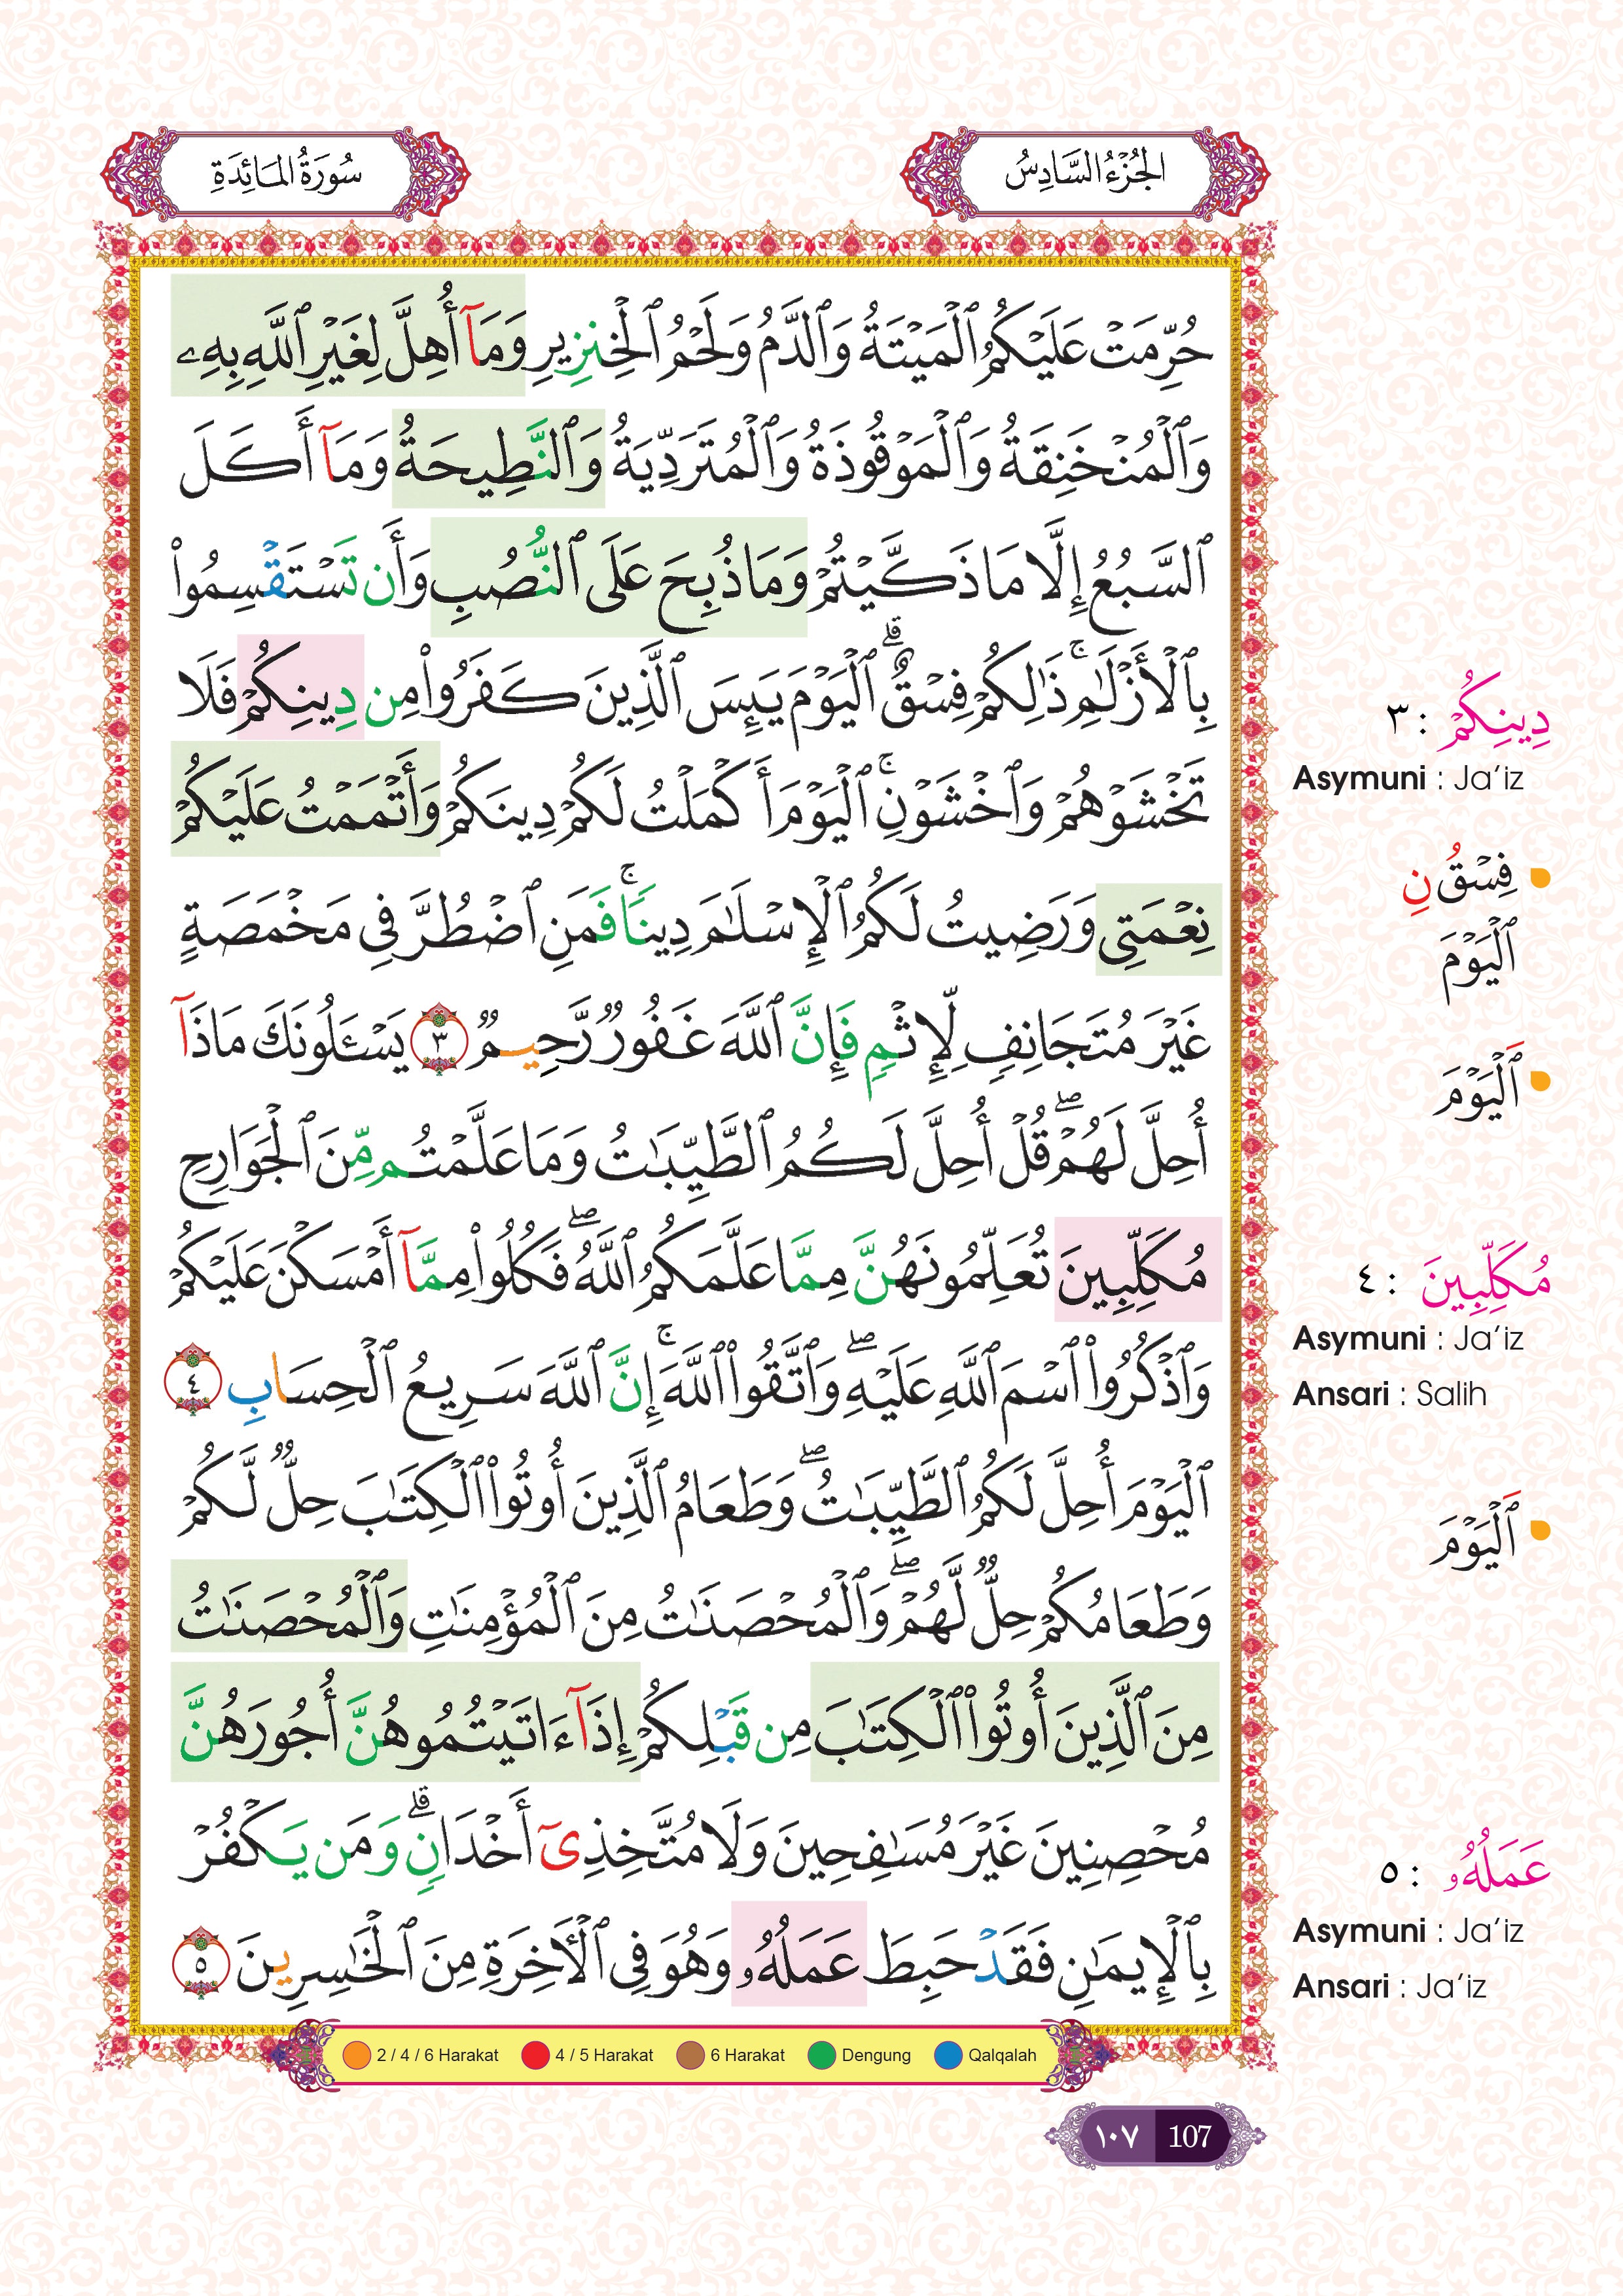 الجُزْءُ السَّادِسُ
سُورَةُ المَائِدَةِ
حُرِّمَتْ عَلَيْكُمُ ٱلْمَيْتَةُ وَٱلدَّمُ وَلَحْمُ ٱلْخِنزِيرِ وَمَآ أُهِلَّ لِغَيْرِ ٱللَّهِ بِهِۦ
وَٱلْمُنْخَنِقَةُ وَٱلْمَوْقُوذَةُ وَٱلْمُتَرَدِّيَةُ وَٱلنَّطِيحَةُ وَمَآ أَكَلَ
ٱلسَّبُعُ إِلَّا مَا ذَكَّيْتُمْ وَمَا ذُبِحَ عَلَى ٱلنُّصُبِ وَأَن تَسْتَقْسِمُوا۟
بِٱلْأَزْلَٰمِ ۚ ذَٰلِكُمْ فِسْقٌ ۗ ٱلْيَوْمَ يَئِسَ ٱلَّذِينَ كَفَرُوا۟ مِن دِينِكُمْ فَلَا
تَخْشَوْهُمْ وَٱخْشَوْنِ ۚ ٱلْيَوْمَ أَكْمَلْتُ لَكُمْ دِينَكُمْ وَأَتْمَمْتُ عَلَيْكُمْ
نِعْمَتِى وَرَضِيتُ لَكُمُ ٱلْإِسْلَٰمَ دِينًا ۚ فَمَنِ ٱضْطُرَّ فِى مَخْمَصَةٍ
غَيْرَ مُتَجَانِفٍ لِّإِثْمٍ فَإِنَّ ٱللَّهَ غَفُورٌ رَّحِيمٌ ٣ يَسْـَٔلُونَكَ مَاذَآ
أُحِلَّ لَهُمْ ۖ قُلْ أُحِلَّ لَكُمُ ٱلطَّيِّبَٰتُ وَمَا عَلَّمْتُم مِّنَ ٱلْجَوَارِحِ
مُكَلِّبِينَ تُعَلِّمُونَهُنَّ مِمَّا عَلَّمَكُمُ ٱللَّهُ ۖ فَكُلُوا۟ مِمَّآ أَمْسَكْنَ عَلَيْكُمْ
وَٱذْكُرُوا۟ ٱسْمَ ٱللَّهِ عَلَيْهِ ۖ وَٱتَّقُوا۟ ٱللَّهَ ۚ إِنَّ ٱللَّهَ سَرِيعُ ٱلْحِسَابِ ٤
ٱلْيَوْمَ أُحِلَّ لَكُمُ ٱلطَّيِّبَٰتُ ۖ وَطَعَامُ ٱلَّذِينَ أُوتُوا۟ ٱلْكِتَٰبَ حِلٌّ لَّكُمْ
وَطَعَامُكُمْ حِلٌّ لَّهُمْ ۖ وَٱلْمُحْصَنَٰتُ مِنَ ٱلْمُؤْمِنَٰتِ وَٱلْمُحْصَنَٰتُ
مِنَ ٱلَّذِينَ أُوتُوا۟ ٱلْكِتَٰبَ مِن قَبْلِكُمْ إِذَآ ءَاتَيْتُمُوهُنَّ أُجُورَهُنَّ
مُحْصِنِينَ غَيْرَ مُسَٰفِحِينَ وَلَا مُتَّخِذِىٓ أَخْدَانٍ ۗ وَمَن يَكْفُرْ
بِٱلْإِيمَٰنِ فَقَدْ حَبِطَ عَمَلُهُۥ وَهُوَ فِى ٱلْءَاخِرَةِ مِنَ ٱلْخَٰسِرِينَ ٥
دِينِكُمْ : ٣
Asymuni : Ja'iz
فِسْقُنِ
ٱلْيَوْمَ
اَلْيَوْمَ
مُكَلِّبِينَ : ٤
Asymuni : Ja'iz
Ansari : Salih
اَلْيَوْمَ
عَمَلُهُۥ : ٥
Asymuni : Ja'iz
Ansari : Ja'iz
2 / 4 / 6 Harakat 4 / 5 Harakat 6 Harakat Dengung Qalqalah
١٠٧ 107